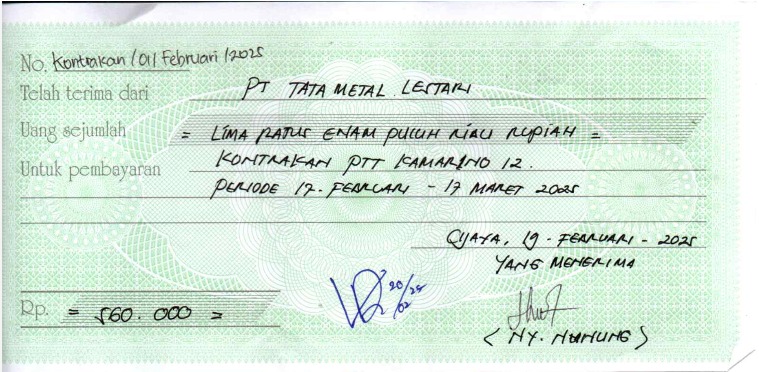 No. Kontrakan /01/ Februari /2025
Telah terima dari PT TATA METAL LESTARI
Uang sejumlah = LIMA RATUS ENAM PULUH RIBU RUPIAH =
Untuk pembayaran KONTRAKAN PTT KAMARINO 12.
PERIODE 17-FEBRUARI - 17 MARET 2025
19 - FEBRUARI - 2025
YANG MENERIMA
20/02 25
Rp. = 560.000 =
( NY. NUNUNG )